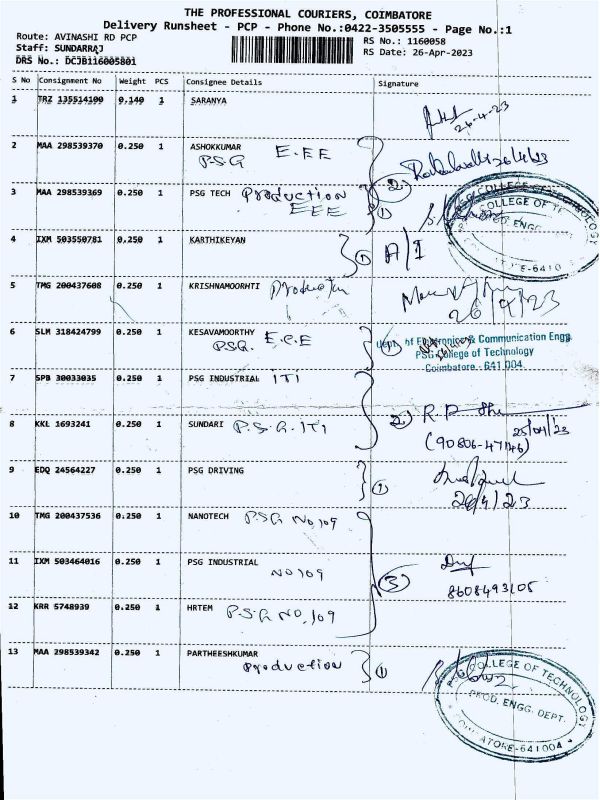 THE PROFESSIONAL COURIERS, COIMBATORE
Delivery Runsheet - PCP - Phone No.:0422-3505555 - Page No.:1
Route: AVINASHI RD PCP
RS No.: 1160058
Staff: SUNDARRAJ
RS Date: 26-Apr-2023
DRS No.: DCJB116005801
S No Consignment No Weight PCS Consignee Details Signature
1 TRZ 135514100 0.140 1 SARANYA
26-4-23
2 MAA 298539370 0.250 1 ASHOKKUMAR E.EE
P.S.G
26/4/23
3 MAA 298539369 0.250 1 PSG TECH Production
EEE
2
1
COLLEGE OF TECHNOLOGY
COLLEGE OF TE
PROD. ENGG.
E-6410
4 IXM 503550781 0.250 1 KARTHIKEYAN 1 A/I
5 TMG 200437608 0.250 1 KRISHNAMOORHTI Production
26/4/23
6 SLM 318424799 0.250 1 KESAVAMOORTHY E.C.E
PSG.
1
Dept. of Electronics & Communication Engg.
PSG College of Technology
Coimbatore - 641 004.
7 SPB 30033035 0.250 1 PSG INDUSTRIAL ITI
2 R.P
8 KKL 1693241 0.250 1 SUNDARI P.S.G. ITI
25/04/23
(90806-47146)
9 EDQ 24564227 0.250 1 PSG DRIVING 1
26/4/23
10 TMG 200437536 0.250 1 NANOTECH P.S.G No,109
11 IXM 503464016 0.250 1 PSG INDUSTRIAL
NO 109
3
8608493105
12 KRR 5748939 0.250 1 HRTEM P.S.G NO,109
13 MAA 298539342 0.250 1 PARTHEESHKUMAR
Production
1
COLLEGE OF TECHNOLOGY
PROD. ENGG. DEPT.
COIMBATORE-641004